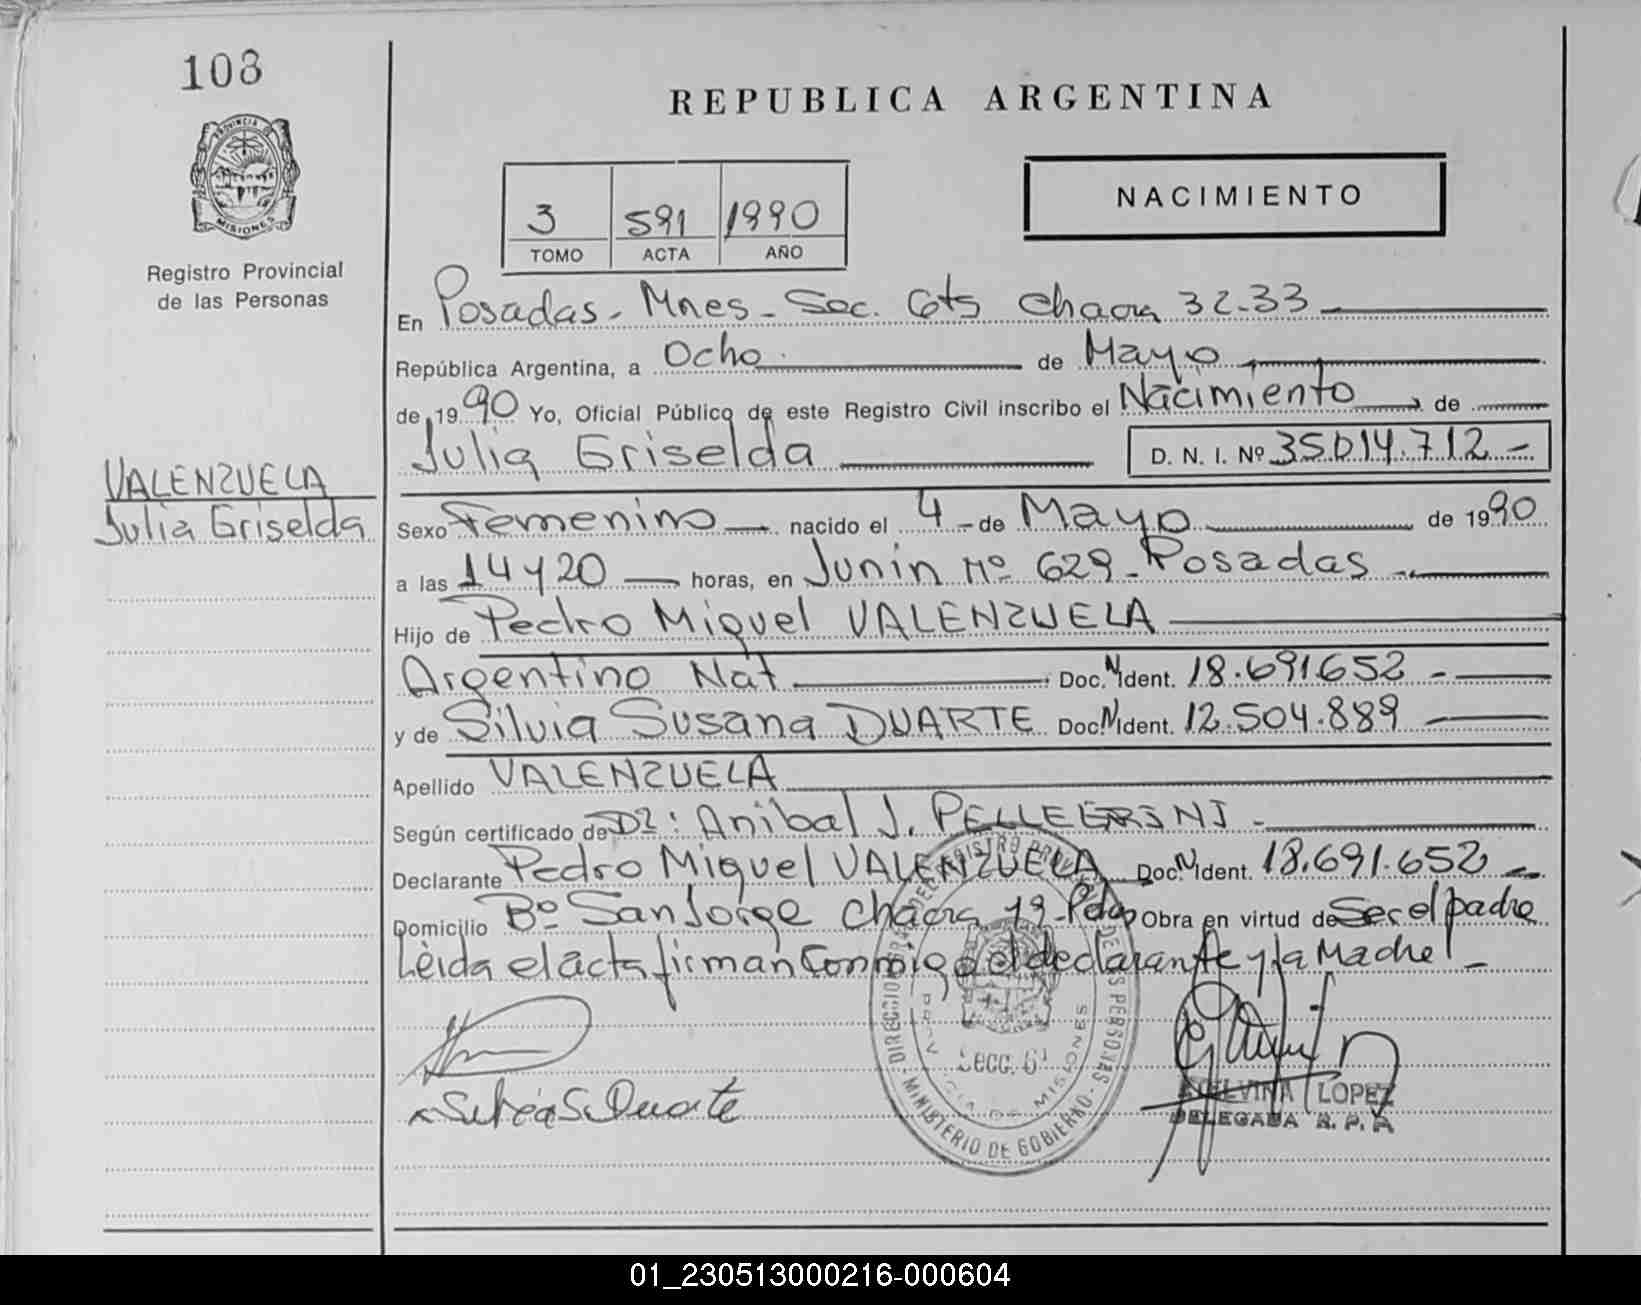 108
REPUBLICA ARGENTINA
PROVINCIA DE
MISIONES
Registro Provincial
de las Personas
3 591 1990
TOMO ACTA AÑO
NACIMIENTO
En Posadas - Mnes - Sec. 6ts Chacra 32-33
República Argentina, a Ocho de Mayo
de 1990 Yo, Oficial Público de este Registro Civil inscribo el Nacimiento de
Julia Griselda D. N. I. Nº 35.014.712 -
VALENZUELA
Julia Griselda
Sexo Femenino nacido el 4 - de Mayo de 1990
a las 14 y 20 horas, en Junin Nº 629 - Posadas -
Hijo de Pedro Miguel VALENZUELA
Argentino Nat Doc. N Ident. 18.691.652 -
y de Silvia Susana DUARTE Doc. N Ident. 12.504.889
Apellido VALENZUELA
Según certificado de Dr: Anibal J. PELLEGRINI -
Declarante Pedro Miguel VALENZUELA Doc. N Ident. 18.691.652 -
Domicilio Bº San Jorge Chacra 19 - Pdas Obra en virtud de Ser el padre
Leida el acta firman Conmigo el declarante y la Madre! -
Silvia S. Duarte
DIRECCION GRAL DEL REGISTRO PROVINCIAL DE LAS PERSONAS - MINISTERIO DE GOBIERNO -
PROVINCIA DE MISIONES
Secc. 6ª
LOPEZ
DELEGADA R. P. P.
01_230513000216-000604